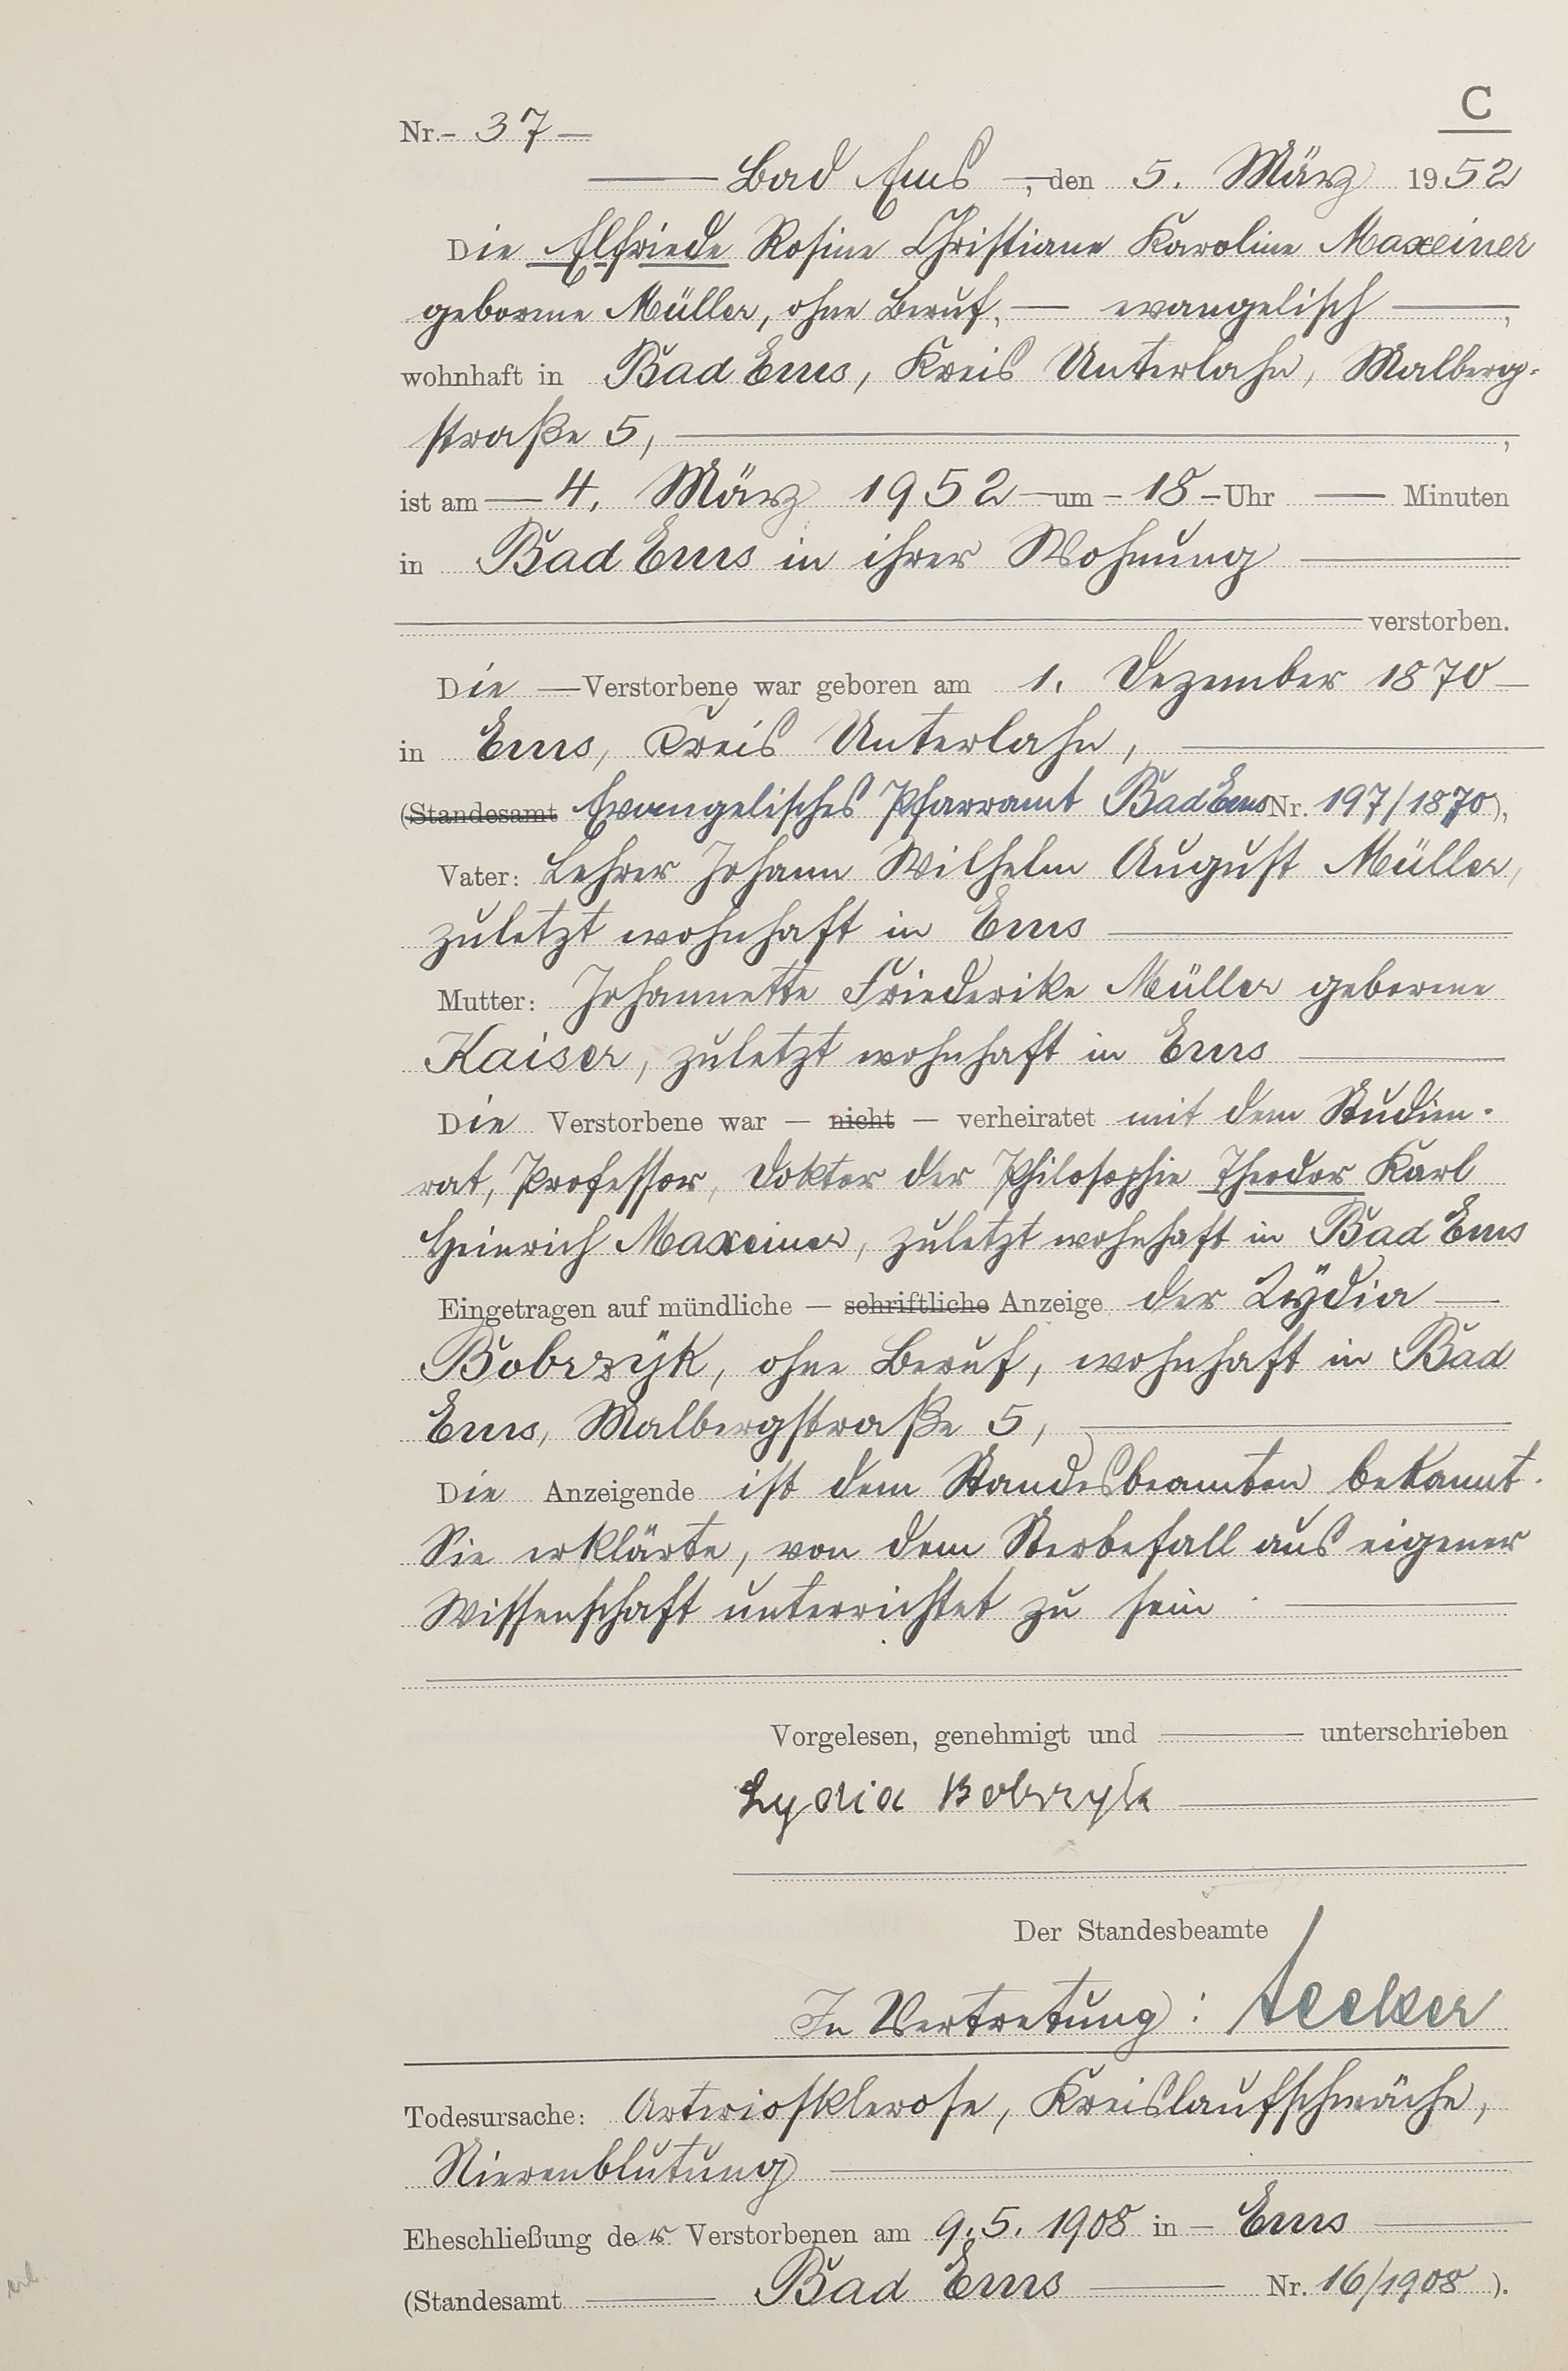 C
Nr. 37
Bad Ems, den 5. März 1952
Die Elfriede Rosine Christiane Karoline Maxeiner
geborene Müller, ohne Beruf, — evangelisch —,
wohnhaft in Bad Ems, Kreis Unterlahn, Malberg-
straße 5, —,
ist am — 4. März 1952 — um — 18 — Uhr — Minuten
in Bad Ems in ihrer Wohnung —
— verstorben.
Die — Verstorbene war geboren am 1. Dezember 1870 —
in Ems, Kreis Unterlahn, —
(Standesamt Evangelisches Pfarramt Bad Ems Nr. 197/1870),
Vater: Lehrer Johann Wilhelm August Müller,
zuletzt wohnhaft in Ems —
Mutter: Johannette Friederike Müller geborene
Kaiser, zuletzt wohnhaft in Ems —
Die Verstorbene war — nicht — verheiratet mit dem Studien-
rat, Professor, Doktor der Philosophie Theodor Karl
Heinrich Maxeiner, zuletzt wohnhaft in Bad Ems
Eingetragen auf mündliche — schriftliche Anzeige der Lÿdia —
Bobrzÿk, ohne Beruf, wohnhaft in Bad
Ems, Malbergstraße 5, —
Die Anzeigende ist dem Standesbeamten bekannt.
Sie erklärte, von dem Sterbefall aus eigener
Wissenschaft unterrichtet zu sein. —
Vorgelesen, genehmigt und — unterschrieben
Lydia Bobrzyk —
Der Standesbeamte
In Vertretung:
Todesursache: Arteriosklerose, Kreislaufschwäche,
Nierenblutung —
Eheschließung der Verstorbenen am 9.5.1908 in — Ems —
(Standesamt — Bad Ems — Nr. 16/1908).